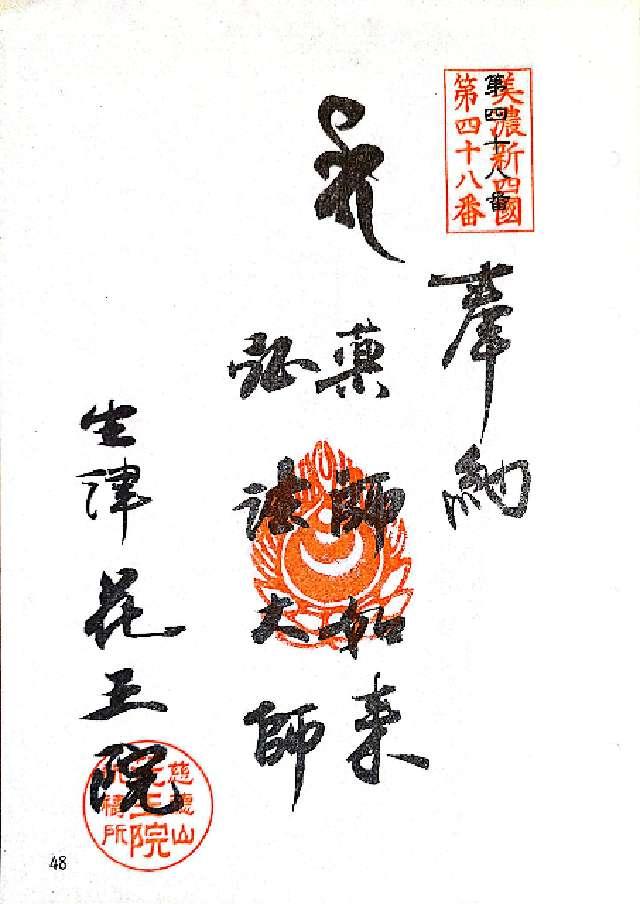 美濃新四國
第四十八番
第四十八番
奉納
薬師如来
弘法大師
生津花王院
花王院
48